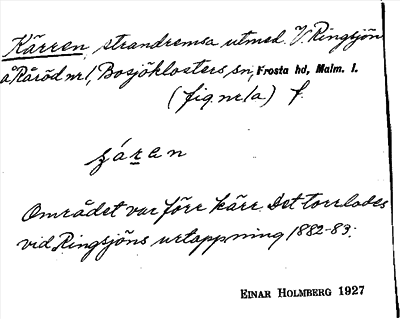 Kärren, strandremsa utmed V. Ringsjön
å Råröd nr 1, Bosjöklosters sn, Frosta hd, Malm. l.
(fig. nr 1a) f.
ɟáran
Området var förr kärr. Det torrlades
vid Ringsjöns urtappning 1882-83.
EINAR HOLMBERG 1927